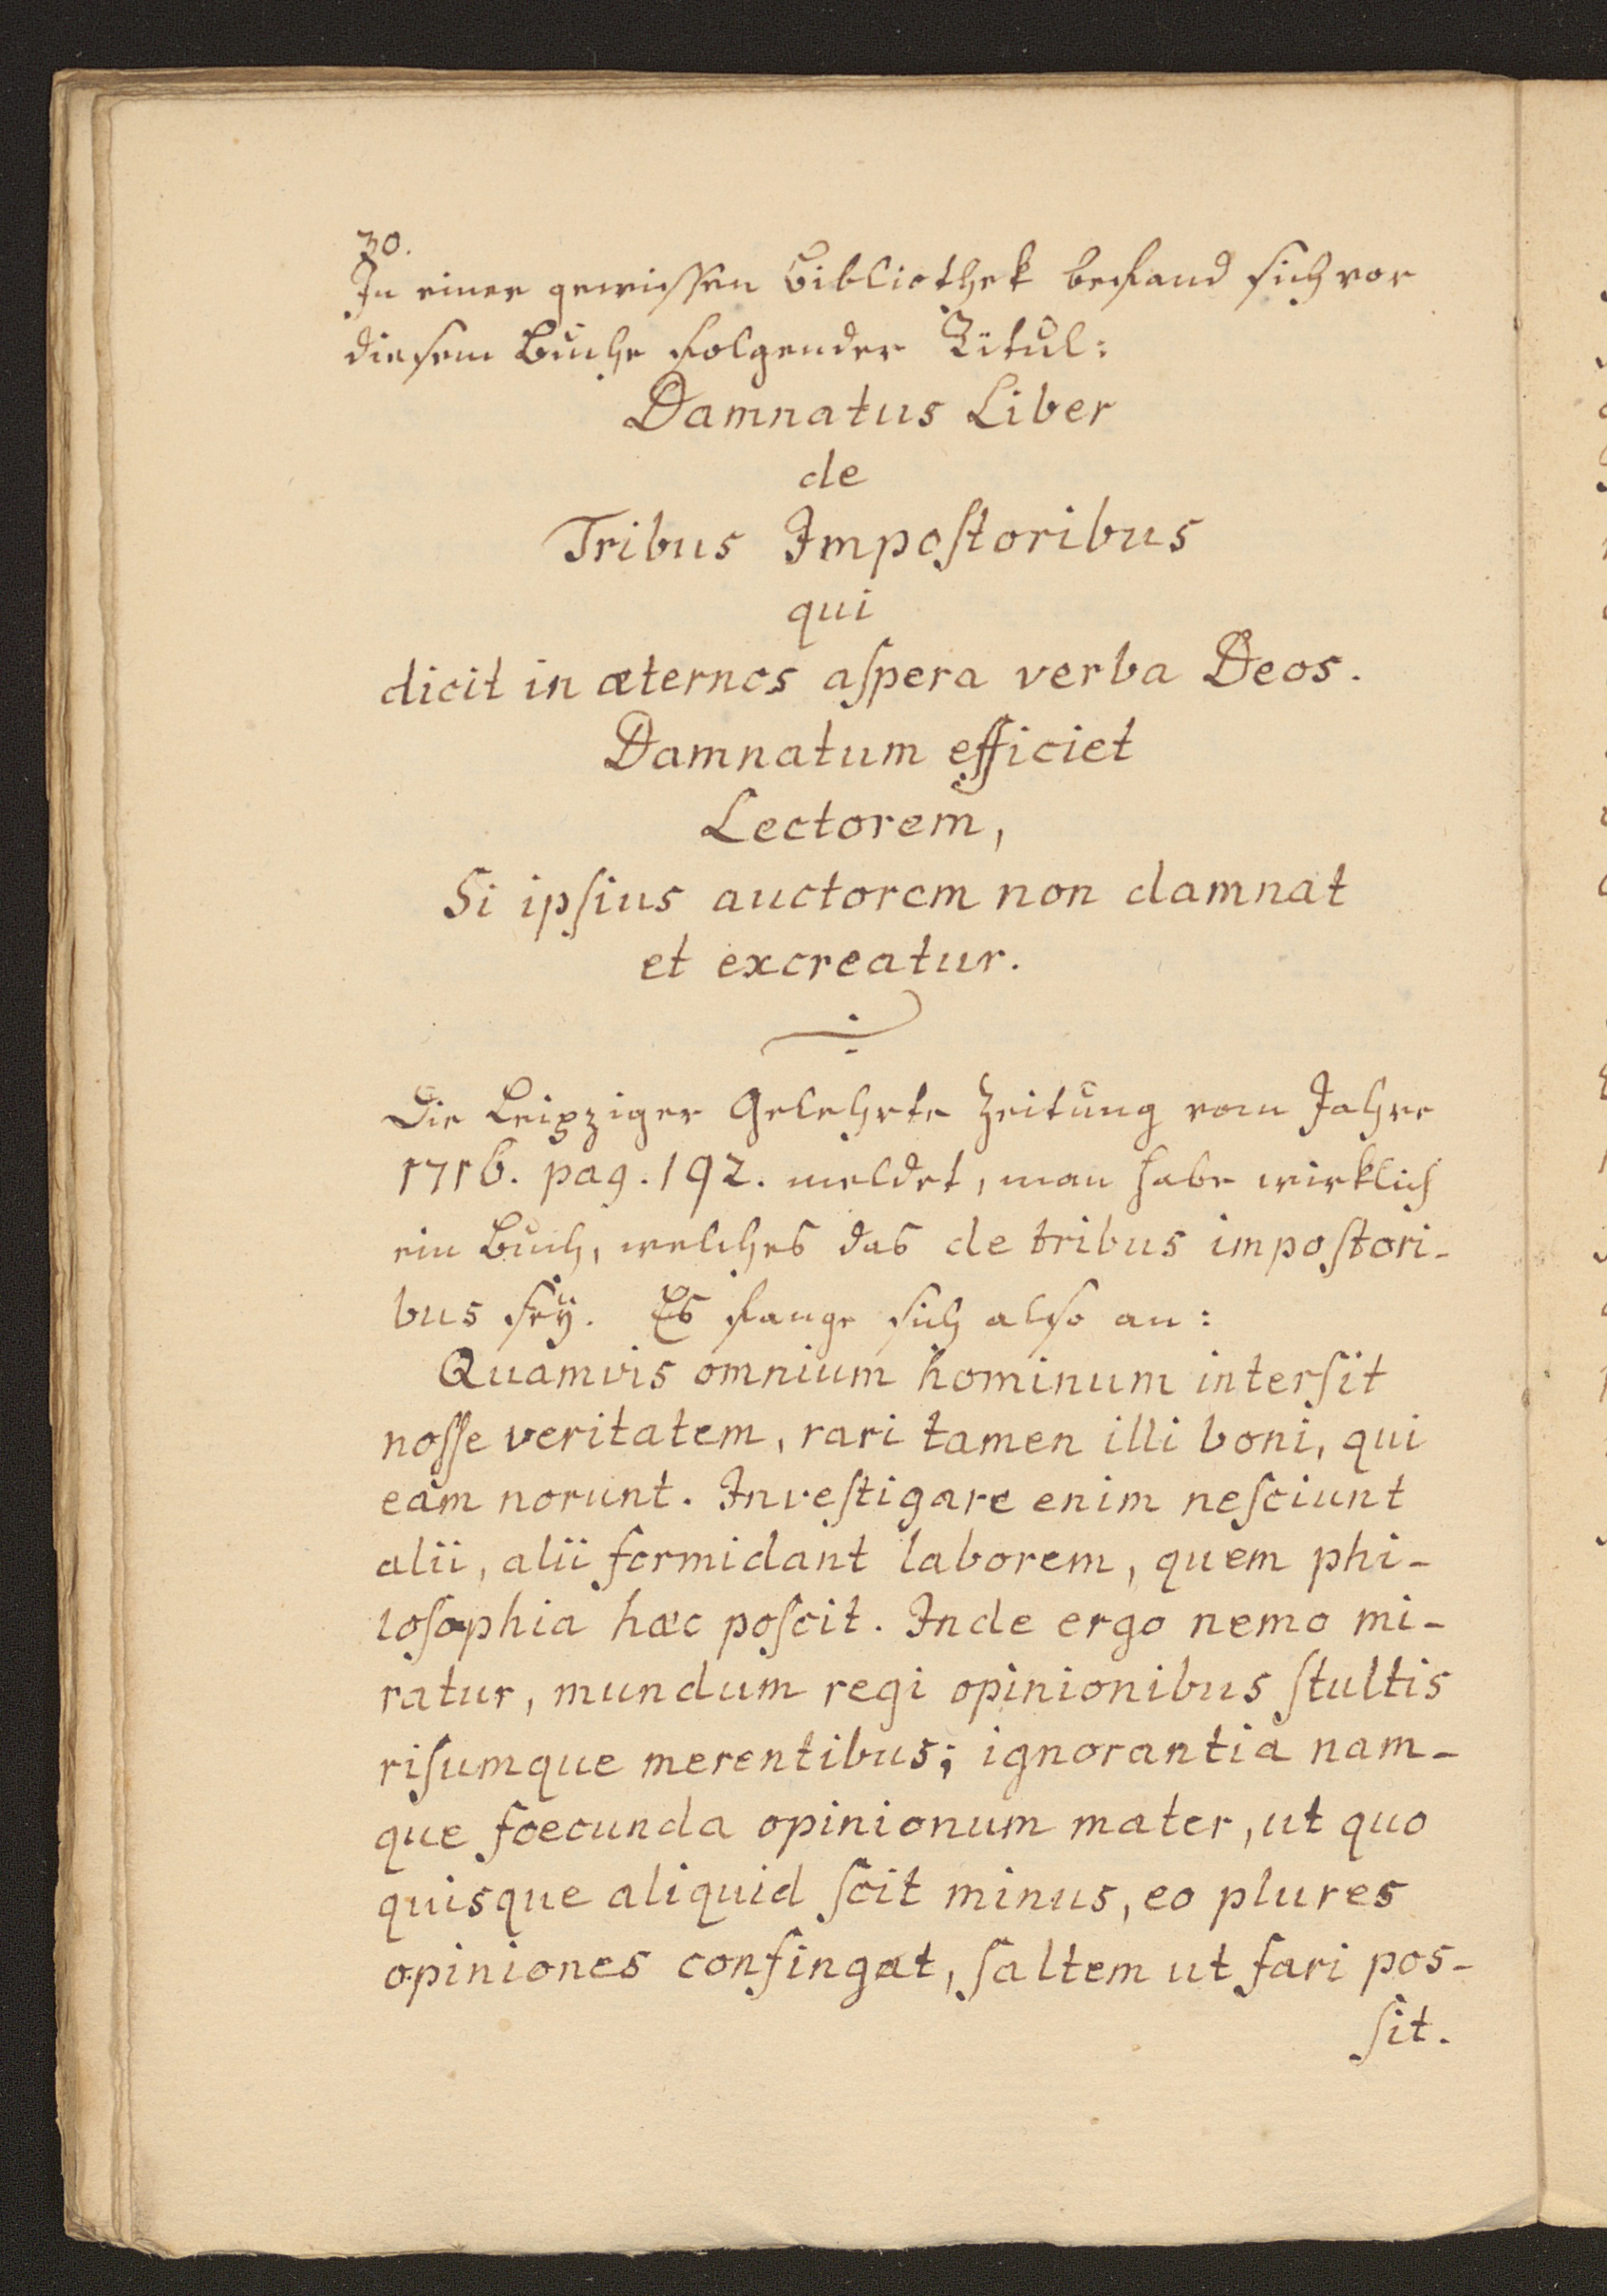 30.
In einer gewissen Bibliothek befand sich vor
diesem Buche folgender Titul:
Damnatus Liber
de
Tribus Impoſtoribus
qui
dicit in æternos aſpera verba Deos.
Damnatum efficiet
Lectorem,
Si ipſius auctorem non damnat
et excreatur.
Die Leipziger Gelehrte Zeitung vom Jahre
1716. pag. 192. meldet, man habe wirklich
ein Buch, welches das de tribus impoſtori-
bus seÿ. Es fange sich also an:
Quamvis omnium hominum interſit
noſſe veritatem, rari tamen illi boni, qui
eam norunt. Inveſtigare enim neſciunt
alii, alii formidant laborem, quem phi-
loſophia hæc poſcit. Inde ergo nemo mi-
ratur, mundum regi opinionibus ſtultis
riſumque merentibus; ignorantia nam-
que foecunda opinionum mater, ut quo
quisque aliquid ſcit minus, eo plures
opiniones confingat, ſaltem ut fari pos-
ſit.